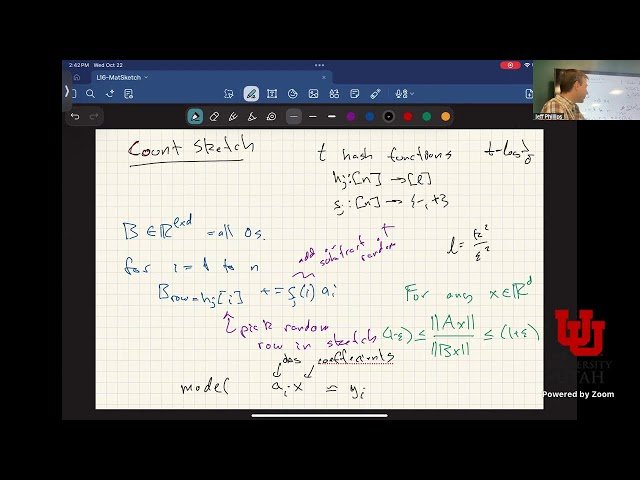 2:42 PM Wed Oct 22
L16-MatSketch
Jeff Phillips
Count Sketch
t hash functions
t~log 1/δ
hj: [n] → [l]
sj: [n] → {-, +}
B ∈ ℝ^{l×d} = all 0s.
add or subtract at random
l = k²/ε²
for i = 1 to n
B row = hj[i] += sj(i) ai
For any x ∈ ℝ^d
pick random
row in sketch
(1-ε) ≤ ||Ax|| / ||Bx|| ≤ (1+ε)
obs coefficients
model ai · x ≈ yi
U
UNIVERSITY
UTAH
Powered by Zoom